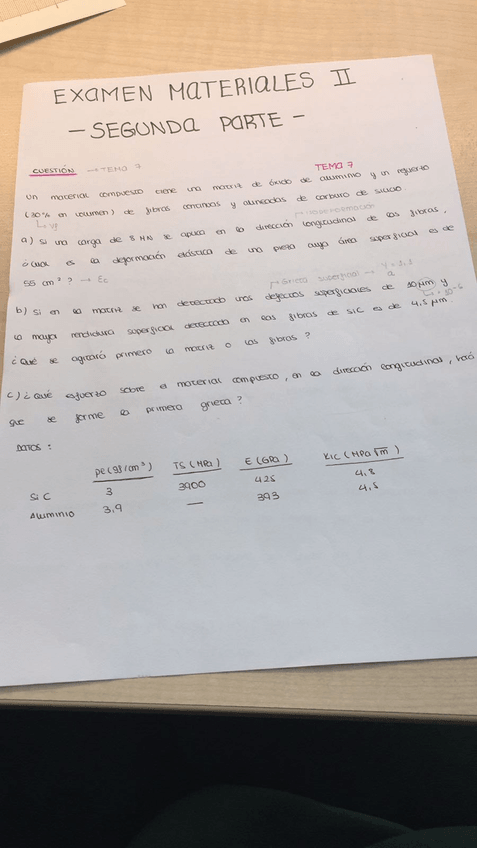 EXAMEN MATERIALES II
- SEGUNDA PARTE -
CUESTIÓN → TEMA 7
TEMA 7
Un material compuesto tiene una matriz de óxido de aluminio y un refuerzo
(30% en volumen) de fibras continuas y alineadas de carburo de silicio.
↳ Vf
a) Si una carga de 8 MN se aplica en la dirección longitudinal de las fibras,
¿cuál es la deformación elástica de una pieza cuya área superficial es de
55 cm² ? → Ec
Grieta superficial → Y = 1,1
a
b) Si en la matriz se han detectado unos defectos superficiales de 30 μm y
la mayor rendidura superficial detectada en las fibras de SiC es de 4,5 μm.
¿Qué se agitará primero la matriz o las fibras ?
c) ¿Qué esfuerzo sobre el material compuesto, en la dirección longitudinal, hará
que se forme la primera grieta ?
DATOS :
ρe (g/cm³) TS (MPa) E (GPa) KIC (MPa √m)
SiC 3 3900 425 4,8
Aluminio 3,9 — 393 4,5